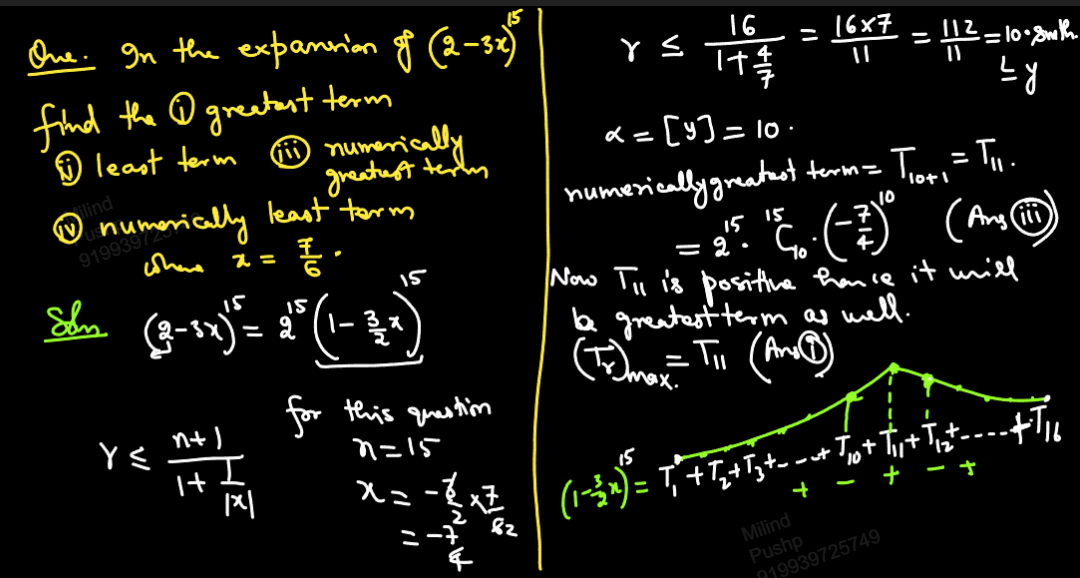 Que. In the expansion of (2-3x)^15
find the (i) greatest term
(ii) least term (iii) numerically greatest term
(iv) numerically least term
where x = 7/6 .
Soln (2-3x)^15 = 2^15 (1 - 3/2 x)^15
for this question
r ≤ (n+1)/(1 + 1/|x|)
n = 15
x = -6/2 × 7/62
= -7/4
r ≤ 16/(1+4/7) = (16×7)/11 = 112/11 = 10.smth.
= y
α = [y] = 10 .
numerically greatest term = T10+1 = T11 .
= 2^15 . 15C10 . (-7/4)^10 (Ans (iii))
Now T11 is positive hence it will
be greatest term as well.
(Tr)max. = T11 (Ans (i))
(1-3/2 x)^15 = T1 + T2 + T3 + - - - + T10 + T11 + T12 + - - - - + T16
+ - + - +
Milind
Pushp
919939725749